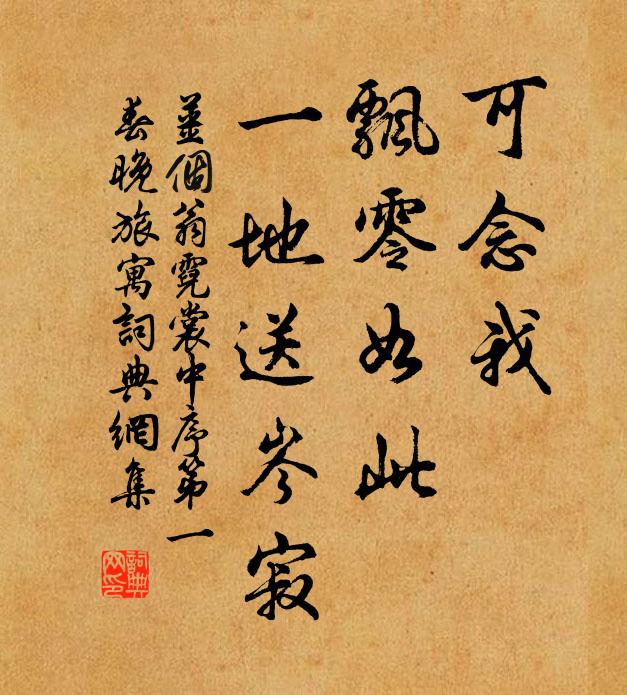 可念我
飄零如此
一地送岑寂
姜個翁霓裳中序第一
春晚旅寓詞典網集
詞典网印